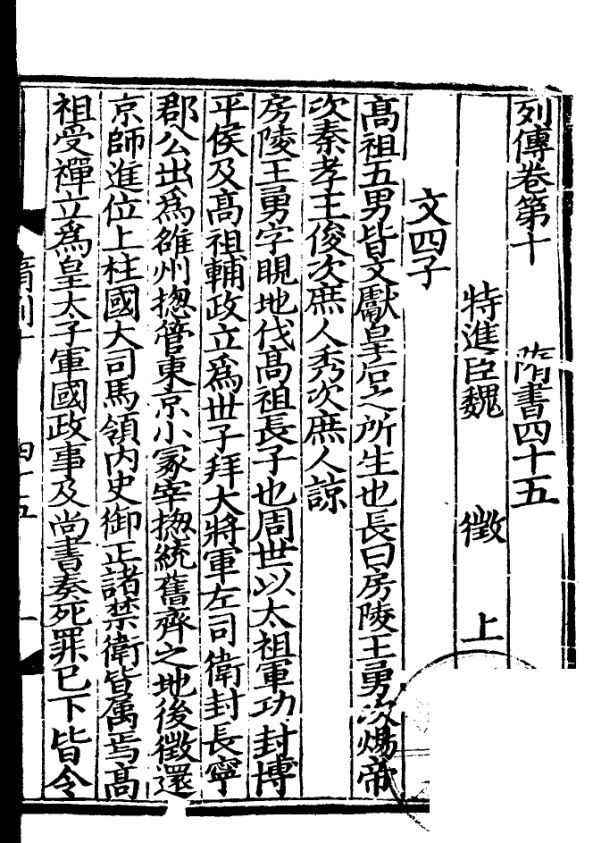 列傳卷第十 隋書四十五
特進臣魏 徵 上
文四子
高祖五男皆文獻皇后之所生也長曰房陵王勇次煬帝
次秦孝王俊次庶人秀次庶人諒
房陵王勇字睍地伐高祖長子也周世以太祖軍功封博
平侯及高祖輔政立爲世子拜大將軍左司衛封長寧
郡公出爲雒州揔管東京小冢宰揔統舊齊之地後徵還
京師進位上柱國大司馬領内史御正諸禁衛皆属焉高
祖受禪立爲皇太子軍國政事及尚書奏死罪已下皆令